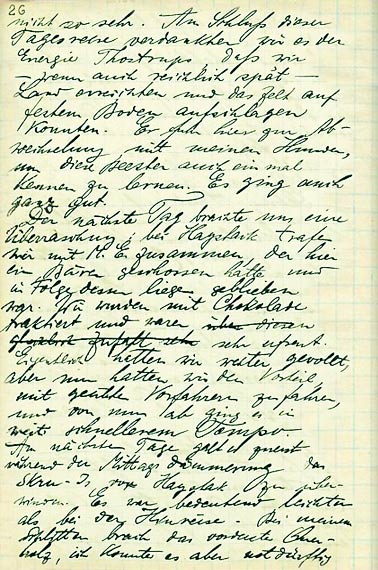 26
nicht so sehr. Am Schluß dieser
Tagesreise verdankten wir es der
Energie Thostrups, daß wir
– wenn auch reichlich spät –
Land erreichten und das Zelt auf
festem Boden aufschlagen
konnten. Er fuhr hier zur Ab-
wechselung mit meinen Hunden,
um diese Beester auch einmal
kennen zu lernen. Es ging auch
ganz gut.
Der nächste Tag brachte uns eine
Überraschung; bei Hagstack trafen
wir mit K. E. zusammen, der hier
ein Bären geschossen hatte und
in Folge dessen liegen geblieben
war. Wir wurden mit Chokolade
traktiert und waren über diesen
Zufall sehr sehr erfreut.
Eigentlich hatten wir weiter gewollt,
aber nun hatten wir den Vorteil,
mit Vorfahren zu fahren,
und von nun ab ging es in
weit schnellerem Tempo.
Am nächsten Tage galt es zuerst
während der Mittagsdämmerung das
Skru-Is vor Hagstack zu über-
winden. Es war bedeutend leichter
als bei der Hinreise. Bei meinem
Schlitten brach das vorderste Quer-
holz, ich konnte es aber notdürftig